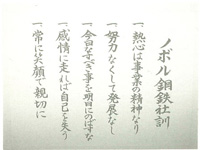 ノボル鋼鉄社訓
一、熱心は事業の精神なり
一、努力なくして発展なし
一、今日なすべき事を明日にのばすな
一、感情に走れば自己を失う
一、常に笑顔で親切に